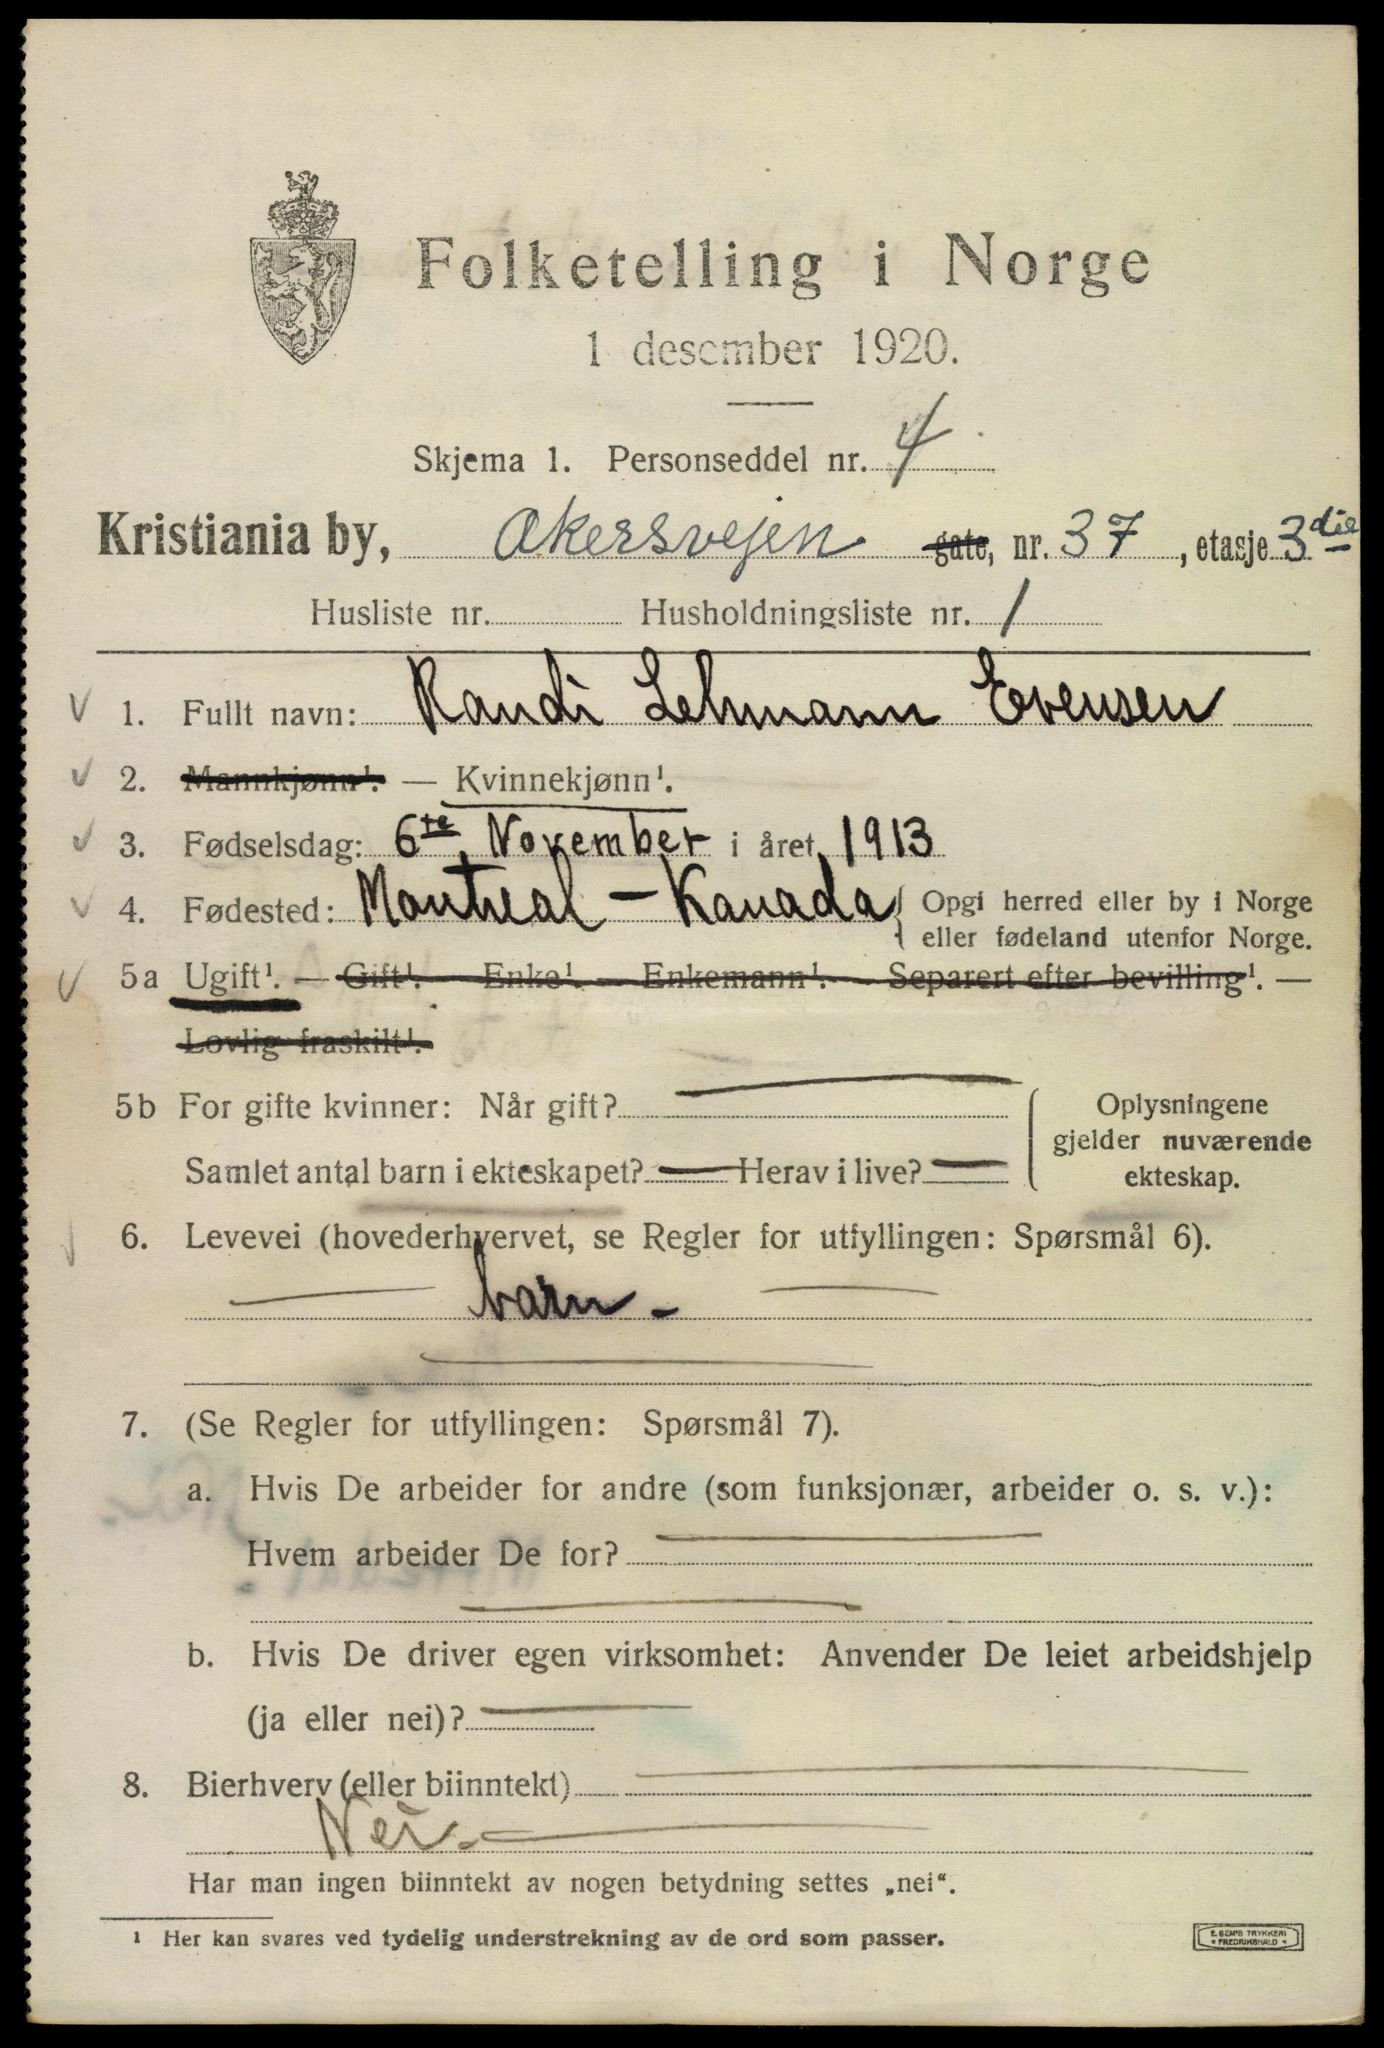 Folketelling i Norge
1 desember 1920.
Skjema 1. Personseddel nr. 4
Kristiania by, Akersvejen gate, nr. 37, etasje 3die
Husliste nr. Husholdningsliste nr. 1
1. Fullt navn: Randi Lehmann Evensen
2. Mannkjønn¹. — Kvinnekjønn¹.
3. Fødselsdag: 6te November i året 1913
4. Fødested: Montreal – Kanada { Opgi herred eller by i Norge
eller fødeland utenfor Norge.
5a Ugift¹. — Gift¹. — Enke¹. — Enkemann¹. — Separert efter bevilling¹. —
Lovlig fraskilt¹.
5b For gifte kvinner: Når gift? — { Oplysningene
gjelder nuværende
Samlet antal barn i ekteskapet? — Herav i live? —
ekteskap.
6. Levevei (hovederhvervet, se Regler for utfyllingen: Spørsmål 6).
— barn - —
7. (Se Regler for utfyllingen: Spørsmål 7).
a. Hvis De arbeider for andre (som funksjonær, arbeider o. s. v.):
Hvem arbeider De for? —
b. Hvis De driver egen virksomhet: Anvender De leiet arbeidshjelp
(ja eller nei)? —
8. Bierhverv (eller biinntekt) —
Nei. —
Har man ingen biinntekt av nogen betydning settes „nei“.
¹ Her kan svares ved tydelig understrekning av de ord som passer.
E. SEM'S TRYKKERI
* FREDRIKSHALD *